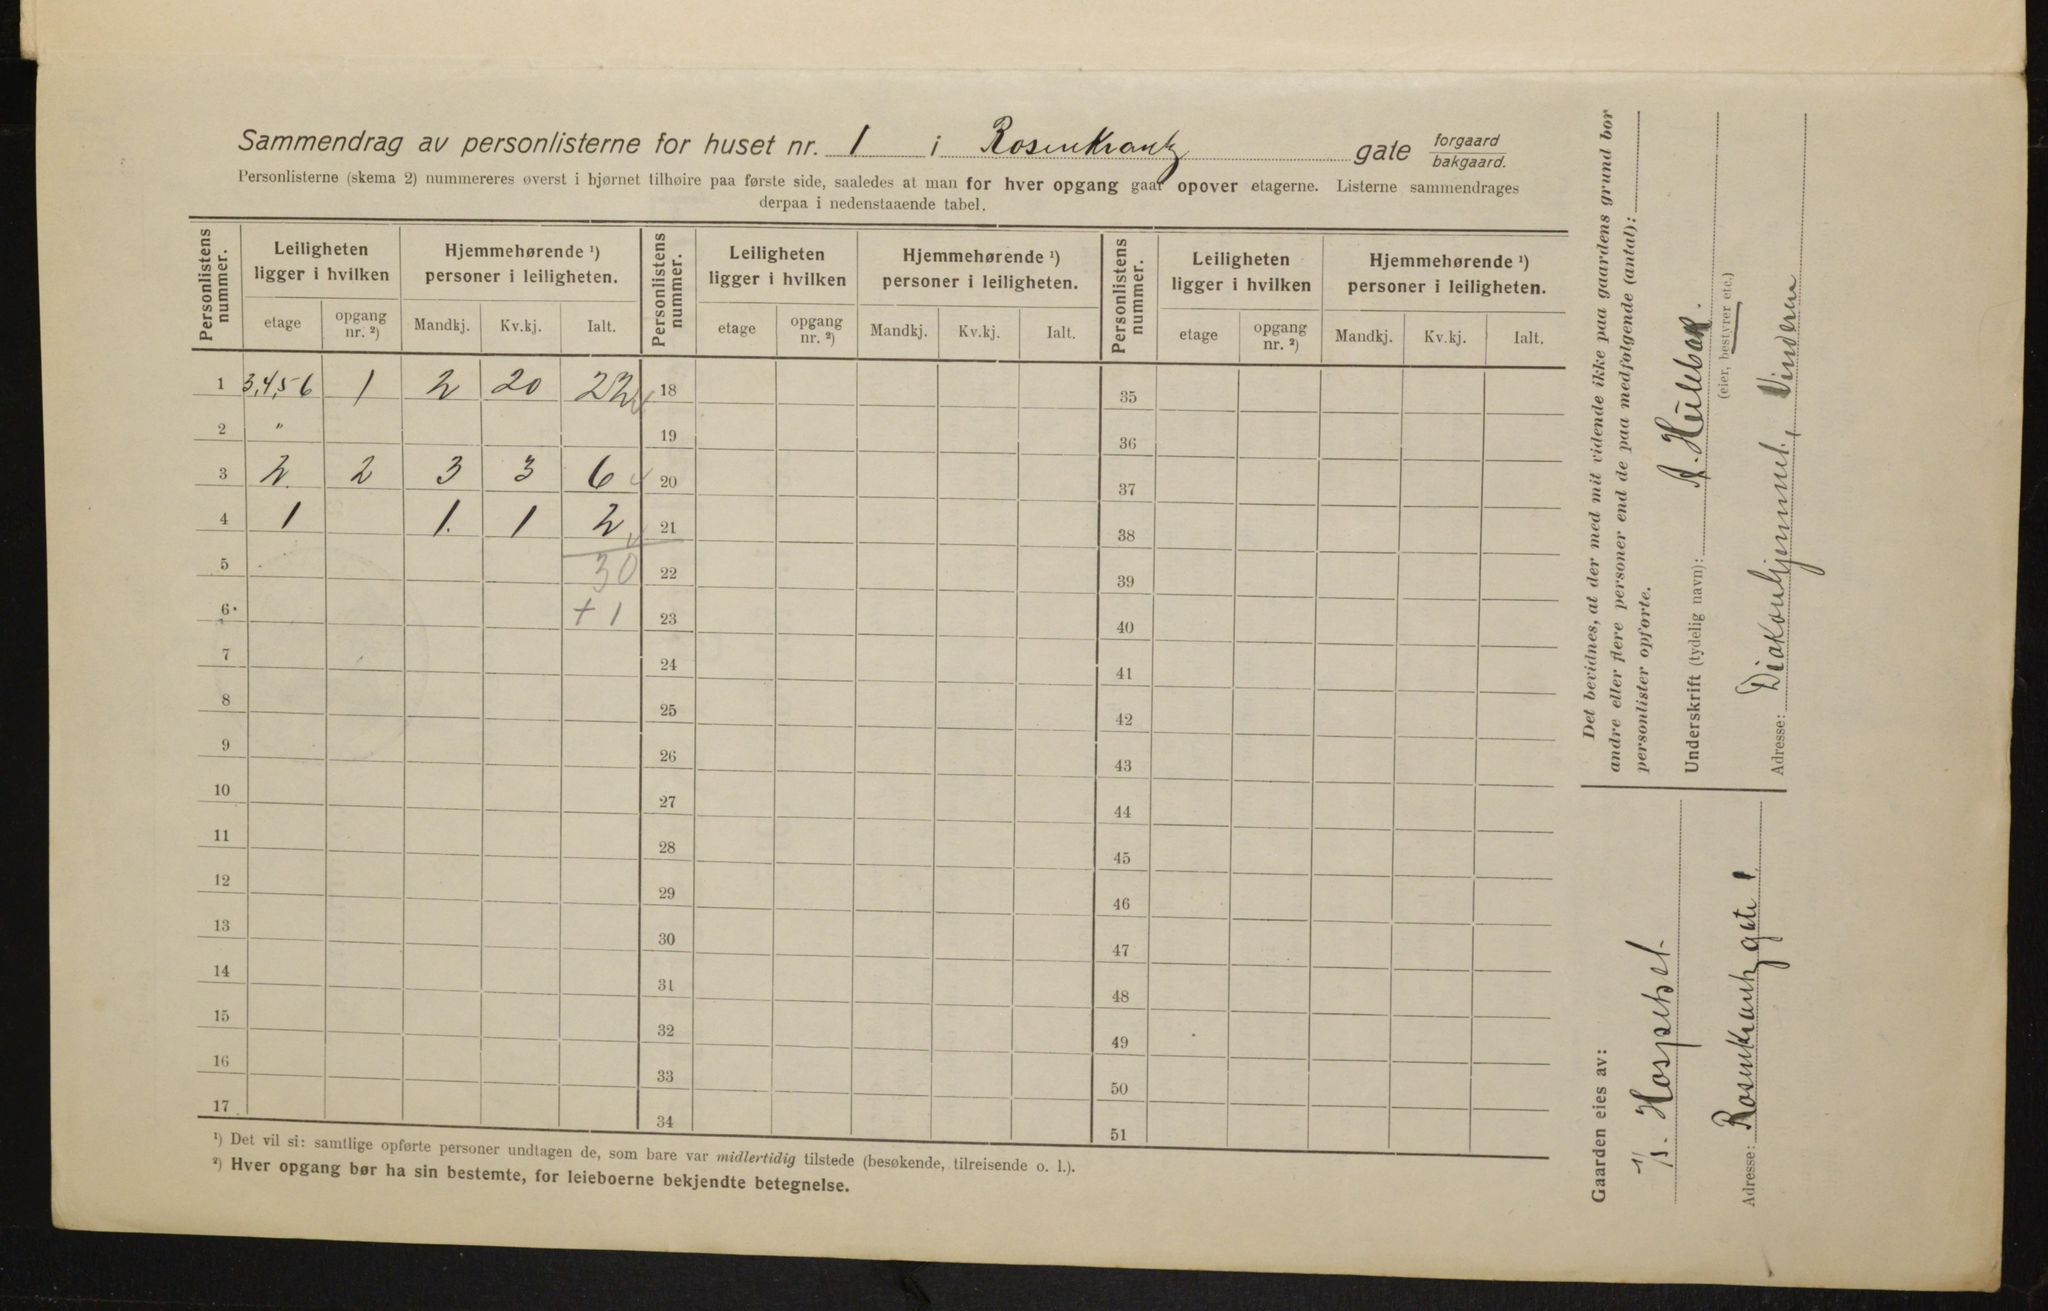 Sammendrag av personlisterne for huset nr. 1 i Rosenkrantz gate forgaard bakgaard.
Personlisterne (skema 2) nummereres øverst i hjørnet tilhøire paa første side, saaledes at man for hver opgang gaar opover etagerne. Listerne sammendrages
derpaa i nedenstaaende tabel.
Personlistens nummer. Leiligheten ligger i hvilken Hjemmehørende ¹) personer i leiligheten. Personlistens nummer. Leiligheten ligger i hvilken Hjemmehørende ¹) personer i leiligheten. Personlistens nummer. Leiligheten ligger i hvilken Hjemmehørende ¹) personer i leiligheten.
etage opgang nr. ²) Mandkj. Kv.kj. Ialt. etage opgang nr. ²) Mandkj. Kv.kj. Ialt. etage opgang nr. ²) Mandkj. Kv.kj. Ialt.
1 3,4,5,6 1 2 20 22 18 35
2 " 19 36
3 2 2 3 3 6 20 37
4 1 1. 1 2 21 38
5 30 22 39
6 + 1 23 40
7 24 41
8 25 42
9 26 43
10 27 44
11 28 45
12 29 46
13 30 47
14 31 48
15 32 49
16 33 50
17 34 51
¹) Det vil si: samtlige opførte personer undtagen de, som bare var midlertidig tilstede (besøkende, tilreisende o. l.).
²) Hver opgang bør ha sin bestemte, for leieboerne bekjendte betegnelse.
Det bevidnes, at der med mit vidende ikke paa gaardens grund bor
andre eller flere personer end de paa medfølgende (antal):
personlister opførte.
Underskrift (tydelig navn):
(eier, bestyrer etc.)
Adresse: Diakonhjemmet, Vinderen
Gaarden eies av:
Hospitset.
Adresse: Rosenkrantz gate 1